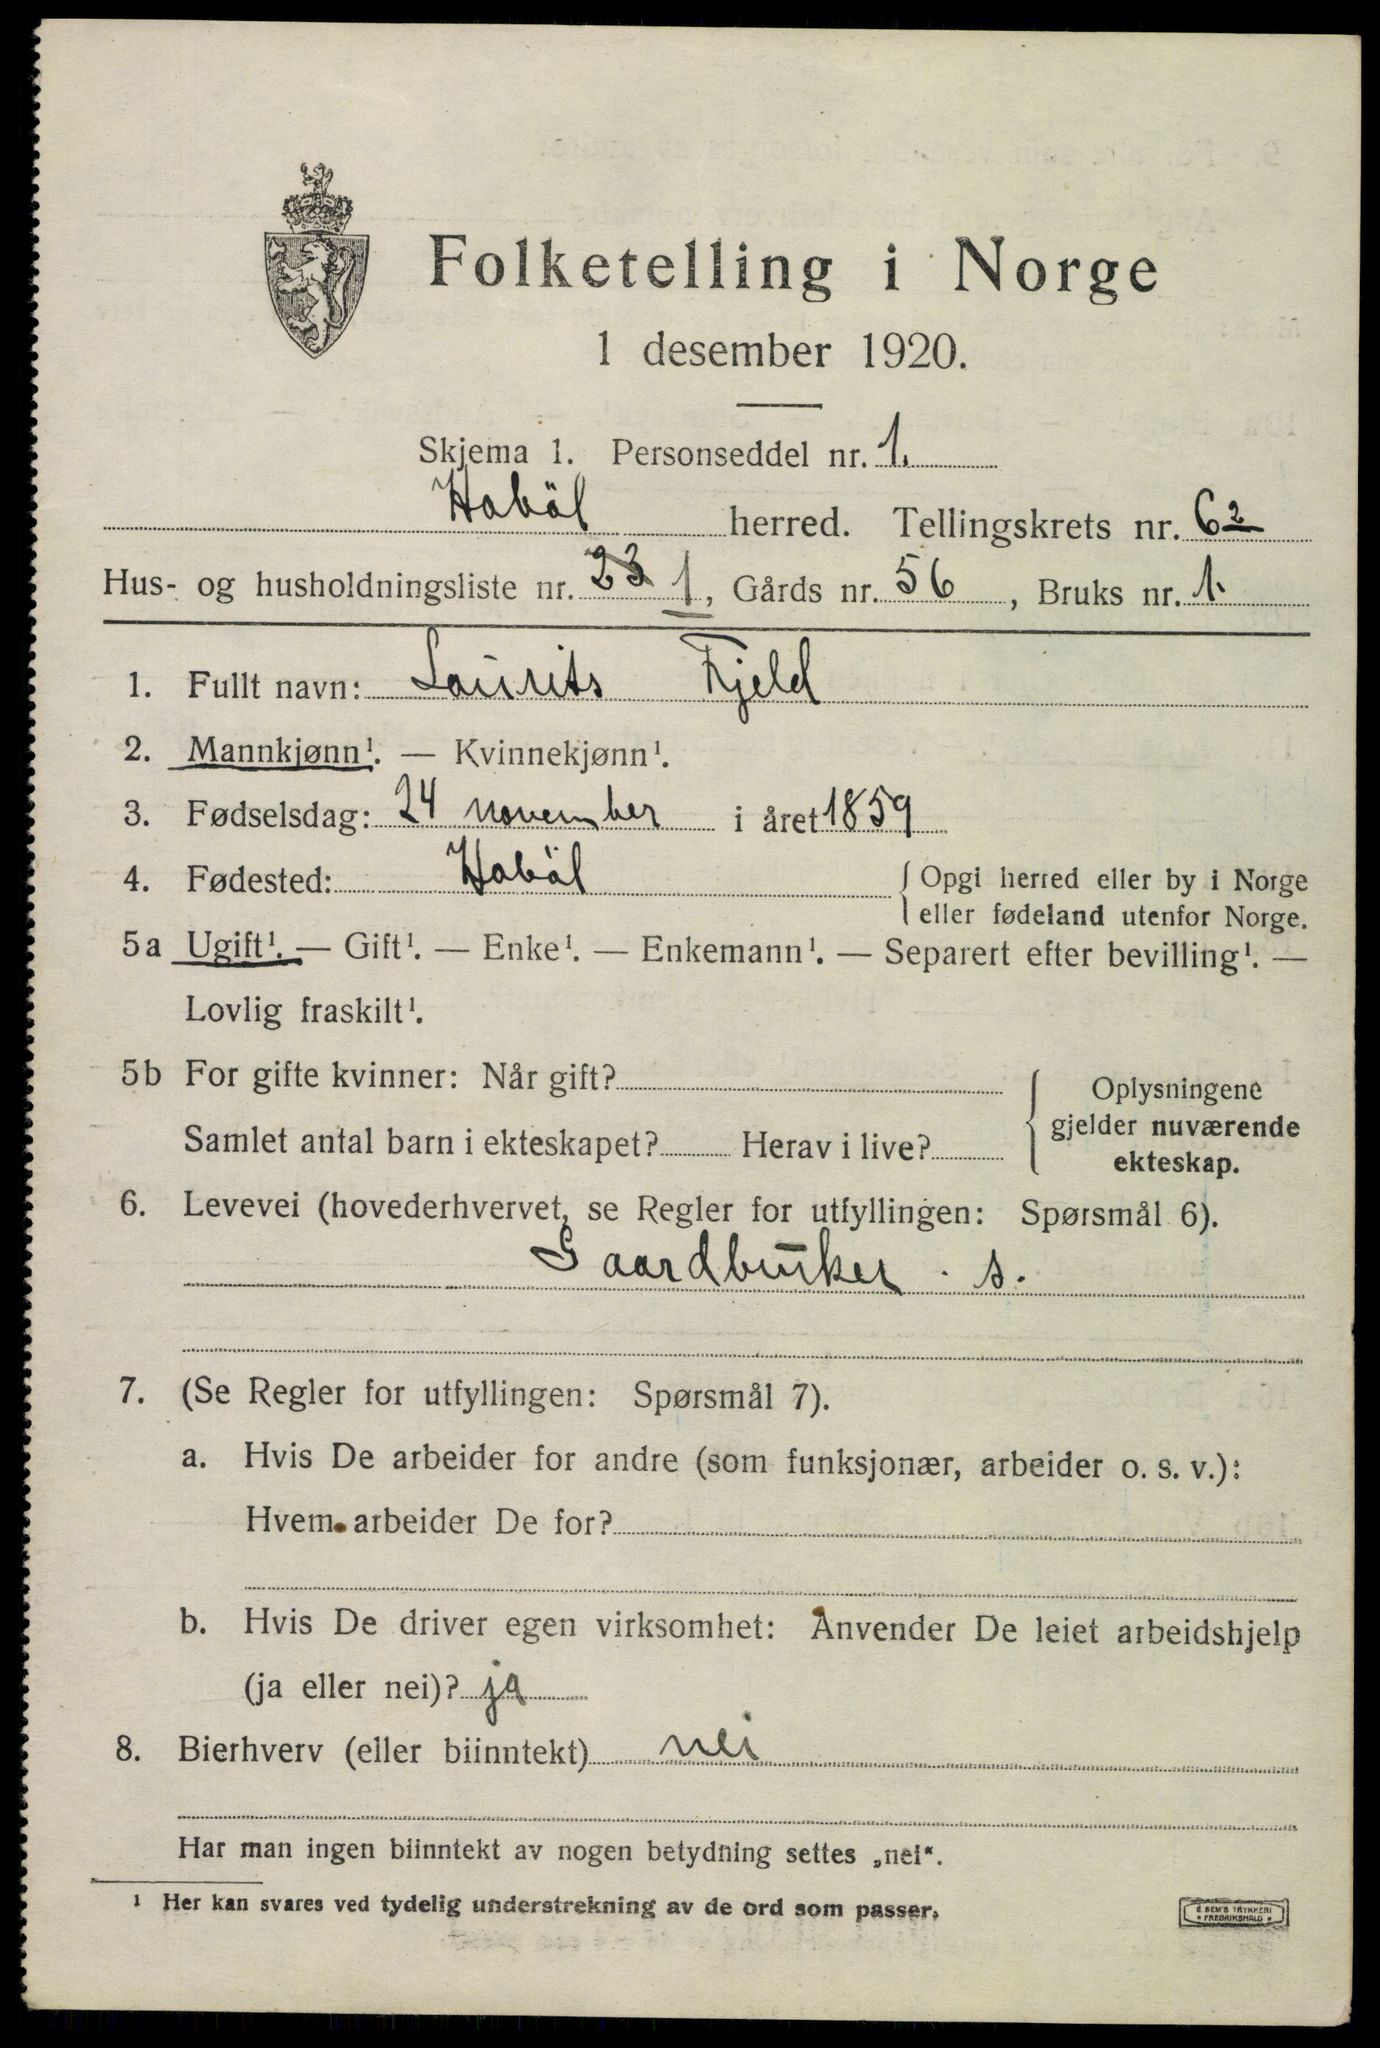 Folketelling i Norge
1 desember 1920.
Skjema 1. Personseddel nr. 1.
Haböl herred. Tellingskrets nr. 6 2
Hus- og husholdningsliste nr. 23 1, Gårds nr. 56, Bruks nr. 1.
1. Fullt navn: Laurits Fjeld
2. Mannkjønn¹. — Kvinnekjønn¹.
3. Fødselsdag: 24 november i året 1859
4. Fødested: Haböl { Opgi herred eller by i Norge
eller fødeland utenfor Norge.
5a Ugift¹. — Gift¹. — Enke¹. — Enkemann¹. — Separert efter bevilling¹. —
Lovlig fraskilt¹.
5b For gifte kvinner: Når gift? { Oplysningene
gjelder nuværende
Samlet antal barn i ekteskapet? Herav i live?
ekteskap.
6. Levevei (hovederhvervet, se Regler for utfyllingen: Spørsmål 6).
Gaardbruker. s.
7. (Se Regler for utfyllingen: Spørsmål 7).
a. Hvis De arbeider for andre (som funksjonær, arbeider o. s. v.):
Hvem arbeider De for?
b. Hvis De driver egen virksomhet: Anvender De leiet arbeidshjelp
(ja eller nei)? ja
8. Bierhverv (eller biinntekt) nei
Har man ingen biinntekt av nogen betydning settes „nei“.
¹ Her kan svares ved tydelig understrekning av de ord som passer.
E. SEM'S TRYKKERI
FREDRIKSHALD